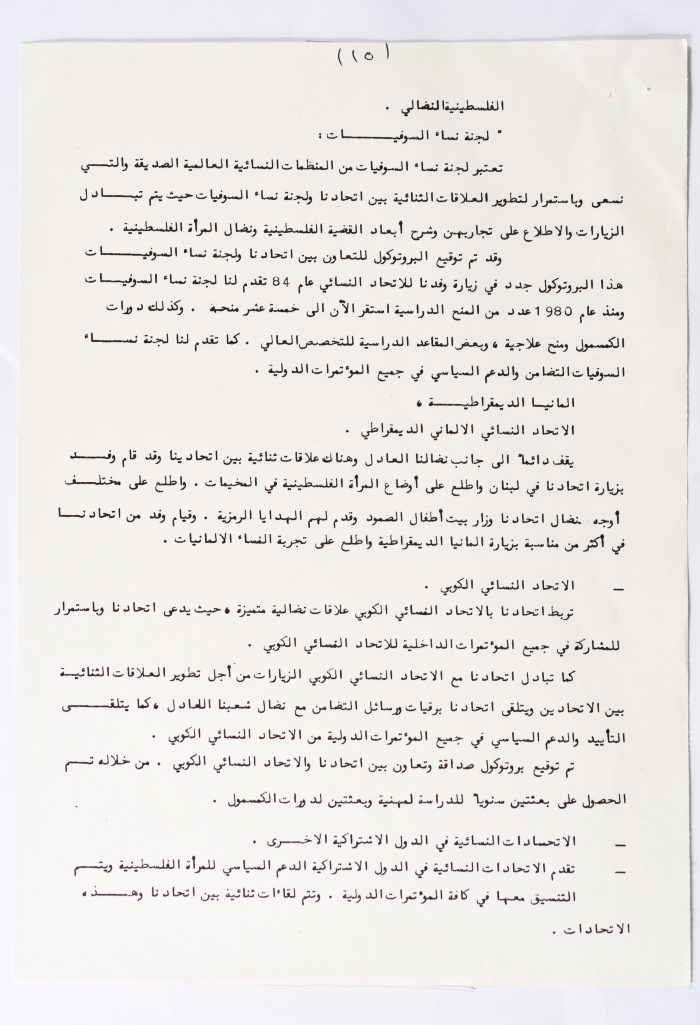 (١٥)
الفلسطينية النضالي .
" لجنة نساء السوفيات :
تعتبر لجنة نساء السوفيات من المنظمات النسائية العالمية الصديقة والتي
نسعى وباستمرار لتطوير العلاقات الثنائية بين اتحادنا ولجنة نساء السوفيات حيث يتم تبادل
الزيارات والاطلاع على تجاربهن وشرح أبعاد القضية الفلسطينية ونضال المرأة الفلسطينية .
وقد تم توقيع البروتوكول للتعاون بين اتحادنا ولجنة نساء السوفيات
هذا البروتوكول جدد في زيارة وفدنا للاتحاد النسائي عام 84 تقدم لنا لجنة نساء السوفيات
ومنذ عام 1980 عدد من المنح الدراسية استقر الآن الى خمسة عشر منحة . وكذلك دورات
الكمسمول ومنح علاجية ، وبعض المقاعد الدراسية للتخصص العالي . كما تقدم لنا لجنة نساء
السوفيات التضامن والدعم السياسي في جميع المؤتمرات الدولية .
المانيا الديمقراطية ،
الاتحاد النسائي الالماني الديمقراطي .
يقف دائما" الى جانب نضالنا العادل وهناك علاقات ثنائية بين اتحادينا وقد قام وفد
بزيارة اتحادنا في لبنان واطلع على أوضاع المرأة الفلسطينية في المخيمات . واطلع على مختلف
أوجه نضال اتحادنا وزار بيت أطفال الصمود وقدم لهم الهدايا الرمزية . وقيام وفد من اتحادنا
في أكثر من مناسبة بزيارة المانيا الديمقراطية واطلع على تجربة النساء الالمانيات .
— الاتحاد النسائي الكوبي .
تربط اتحادنا بالاتحاد النسائي الكوبي علاقات نضالية متميزة ، حيث يدعى اتحادنا وباستمرار
للمشاركة في جميع المؤتمرات الداخلية للاتحاد النسائي الكوبي .
كما تبادل اتحادنا مع الاتحاد النسائي الكوبي الزيارات من أجل تطوير العلاقات الثنائية
بين الاتحادين ويتلقى اتحادنا برقيات ورسائل التضامن مع نضال شعبنا العادل ، كما يتلقى
التأييد والدعم السياسي في جميع المؤتمرات الدولية من الاتحاد النسائي الكوبي .
تم توقيع بروتوكول صداقة وتعاون بين اتحادنا والاتحاد النسائي الكوبي . من خلاله تم
الحصول على بعثتين سنويا" للدراسة لمهنية وبعثتين لدورات الكمسمول .
— الاتحسادات النسائية في الدول الاشتراكية الاخرى .
— تقدم الاتحادات النسائية في الدول الاشتراكية الدعم السياسي للمرأة الفلسطينية ويتم
التنسيق معها في كافة المؤتمرات الدولية . وتتم لقاءات ثنائية بين اتحادنا وهذه
الاتحادات .